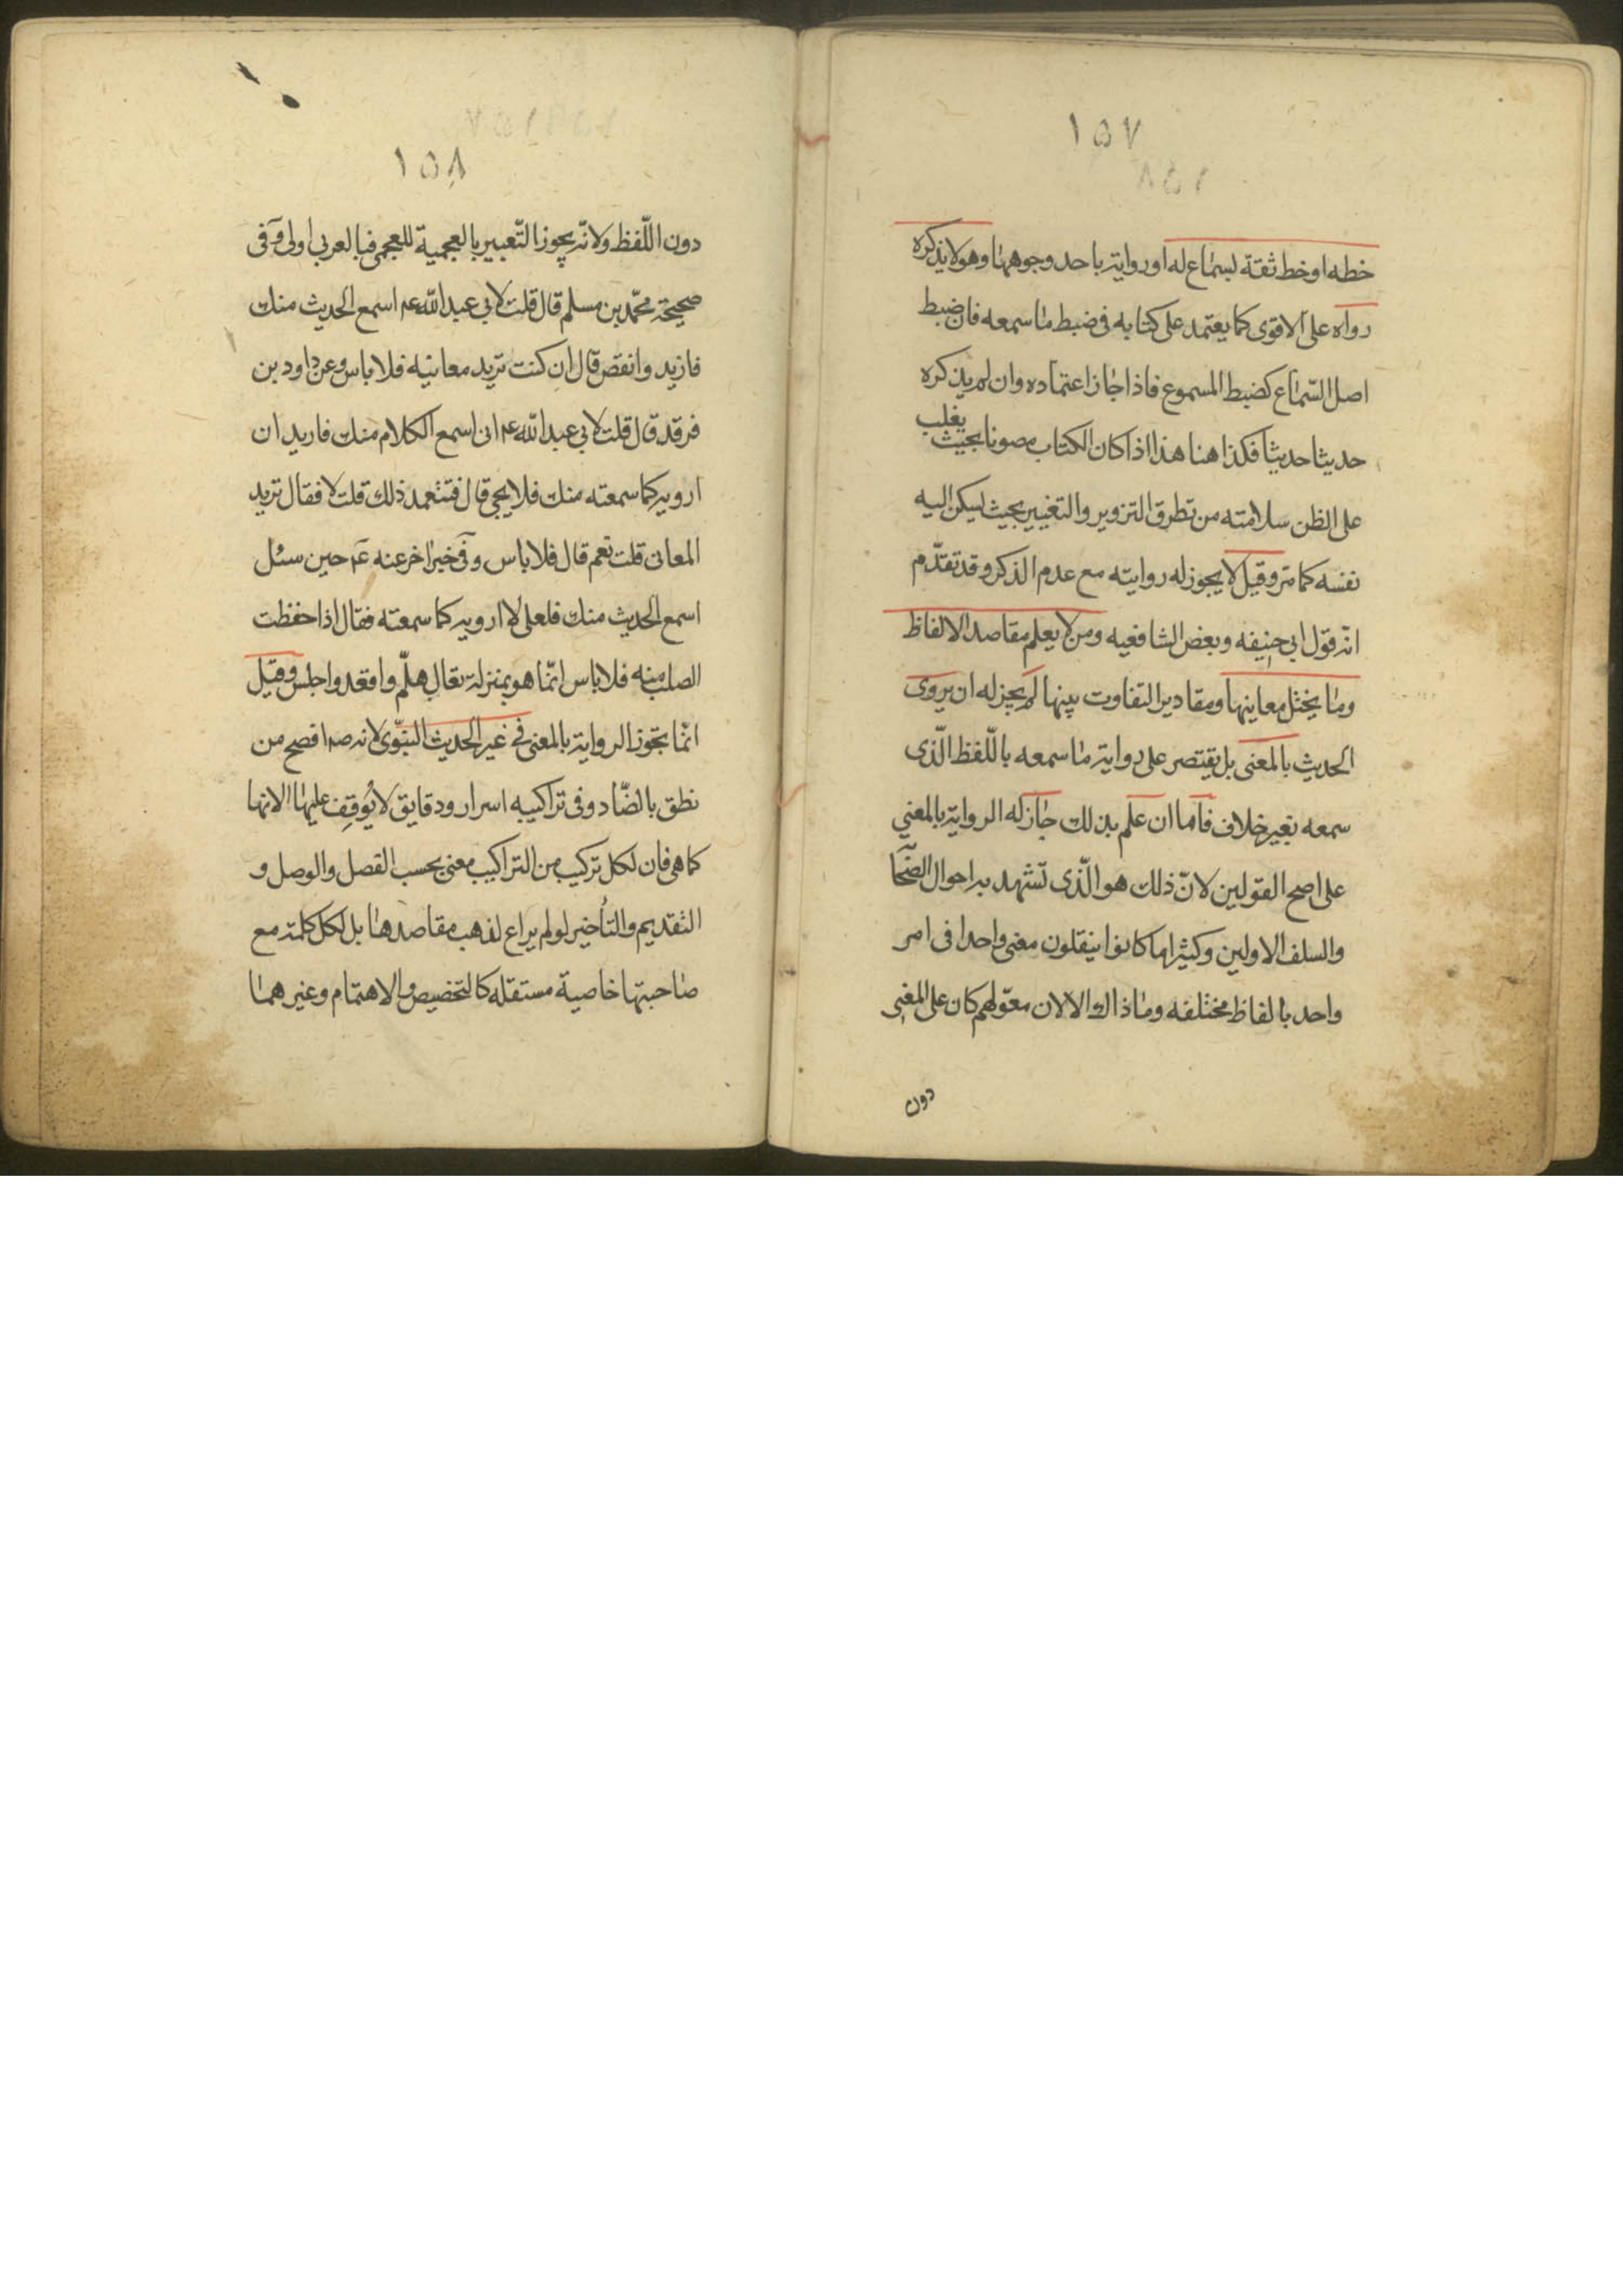 ١٥٧
خطه او خط ثقة بسماع له او رواية باحد وجوههما وهو لا يذكره
رواه على الاقوى كما يعتمد على كتابه فى ضبط ما سمعه فان ضبط
اصل السّماع كضبط المسموع فاذا جاز اعتماده وان لم يذكره
حديثا حديثا فكذا هنا هذا اذا كان الكتاب مصونا بحيث يغلب
على الظن سلامته من تطرق التزوير والتغيير بحيث ليكن اليه
نفسه كما مر وقيل لا يجوز له روايته مع عدم الذكر وقد تقدّم
انه قول ابى حنيفه وبعض الشافعيه ومن لا يعلم مقاصد الالفاظ
وما يختل معاينها ومقادير التفاوت بينها لم يجز له ان يروى
الحديث بالمعنى بل يقتصر على رواية ما سمعه باللّفظ الّذى
سمعه بغير خلاف فاما ان علم بذلك جاز له الرواية بالمعنى
على اصح القولين لانّ ذلك هو الّذى تشهد به احوال الصّحا
والسلف الاولين وكثيرا ما كانوا ينقلون معنى واحدا فى امر
واحد بالفاظ مختلفه وما ذاك الا لان معوّلهم كان على المعنى
دون
١٥٨
دون اللّفظ ولانّه يجوز التّعبير بالعجمية للعجمى فبالعربى اولى وفى
صحيحة محمّد بن مسلم قال قلت لابى عبد اللّه ع اسمع الحديث منك
فازيد وانقص قال ان كنت تريد معانيه فلا باس وعن داود بن
فرقد قال قلت لابى عبد اللّه ع انى اسمع الكلام منك فاريد ان
ارويه كما سمعته منك فلا يجى قال فتتعمد ذلك قلت لا فقال تريد
المعانى قلت نعم قال فلا باس وفى خبر اخر عنه ع حين سئل
اسمع الحديث منك فلعلى لا ارويه كما سمعته فقال اذا حفظت
الصلب منه فلا باس انّما هو بمنزلة تعال هلّم واقعد واجلس وقيل
انّما تجوز الرواية بالمعنى فى غير الحديث النبّوى لانه ص افصح من
نطق بالضّاد وفى تراكيبه اسرار ودقايق لا يُوقِف عليها الا بها
كما هى فان لكل تركيب من التراكيب معنى بحسب الفصل والوصل و
التقديم والتأخير لو لم يراع لذهب مقاصدها بل لكل كلمة مع
صاحبتها خاصية مستقله كالتخصيص والاهتمام وغيرهما